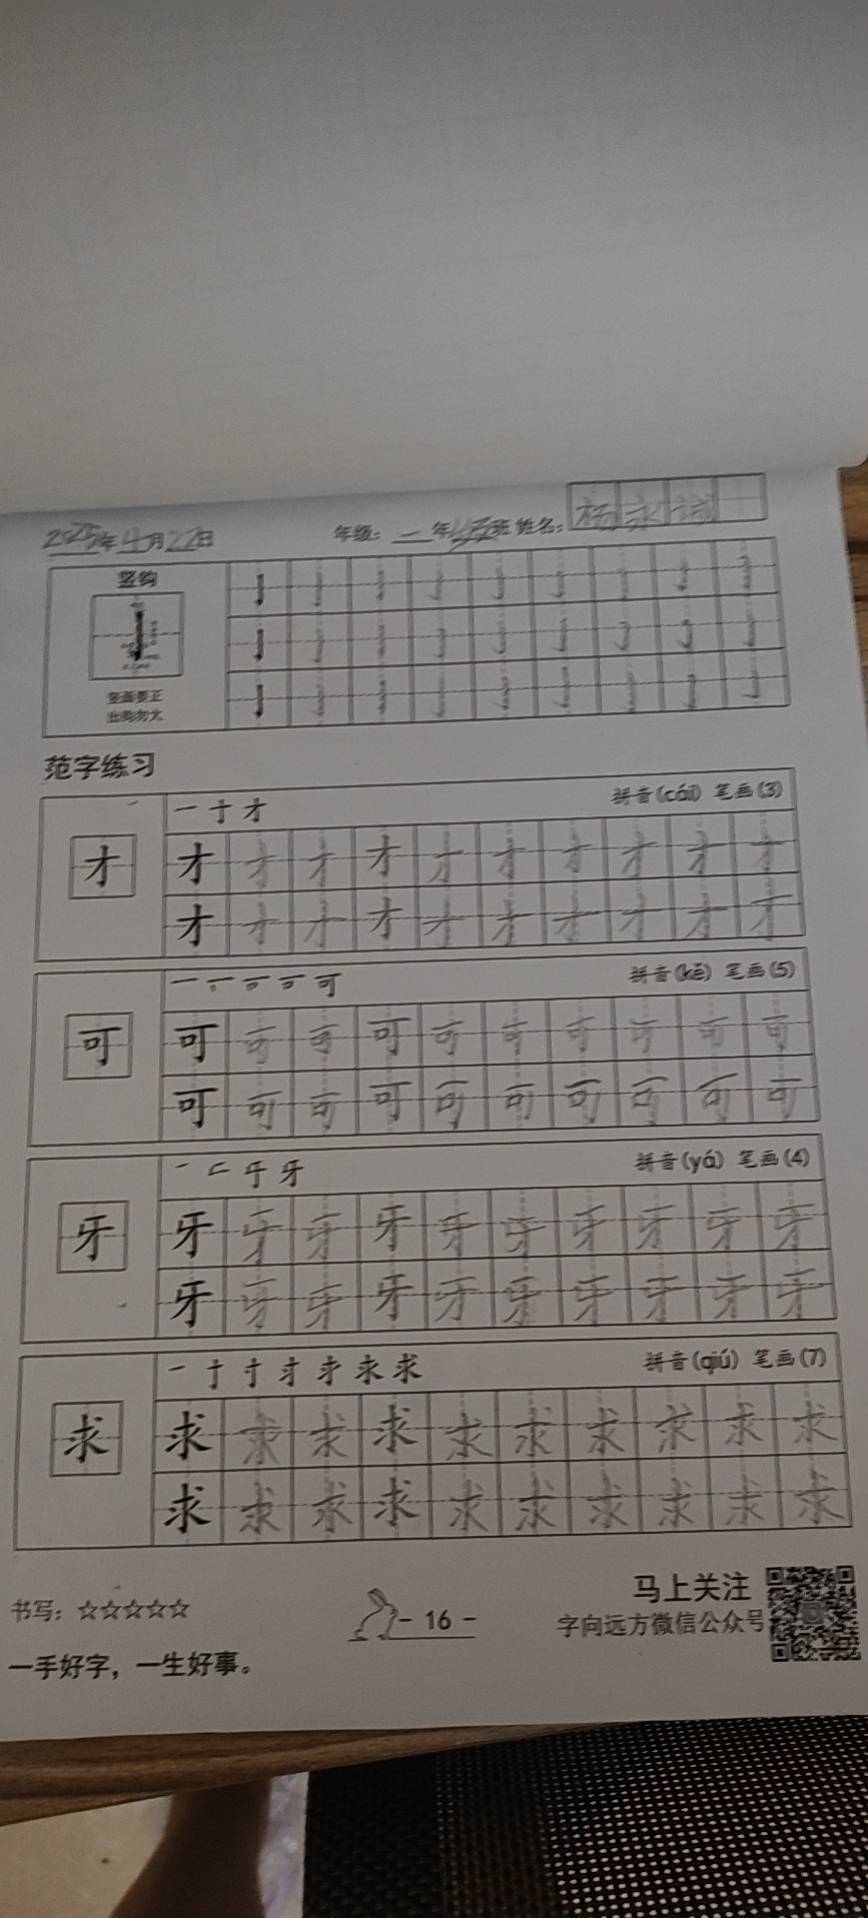 2025年4月22日 年级: 一年 班 姓名: 杨永
竖钩
竖画要正
出钩勿大
范字练习
一 十 才 拼音(cái) 笔画(3)
才 才 才 才 才 才 才 才 才 才 才
才 才 才 才 才 才 才 才 才 才
拼音(kě) 笔画(5)
可 可 可 可 可 可 可 可 可 可 可
可 可 可 可 可 可 可 可 可 可
拼音(yá) 笔画(4)
牙 牙 牙 牙 牙 牙 牙 牙 牙 牙 牙
牙 牙 牙 牙 牙 牙 牙 牙 牙 牙
拼音(qiú) 笔画(7)
求 求 求 求 求 求 求 求 求 求 求
求 求 求 求 求 求 求 求 求 求
书写: ☆☆☆☆☆
- 16 -
马上关注
字向远方微信公众号
一手好字，一生好事。